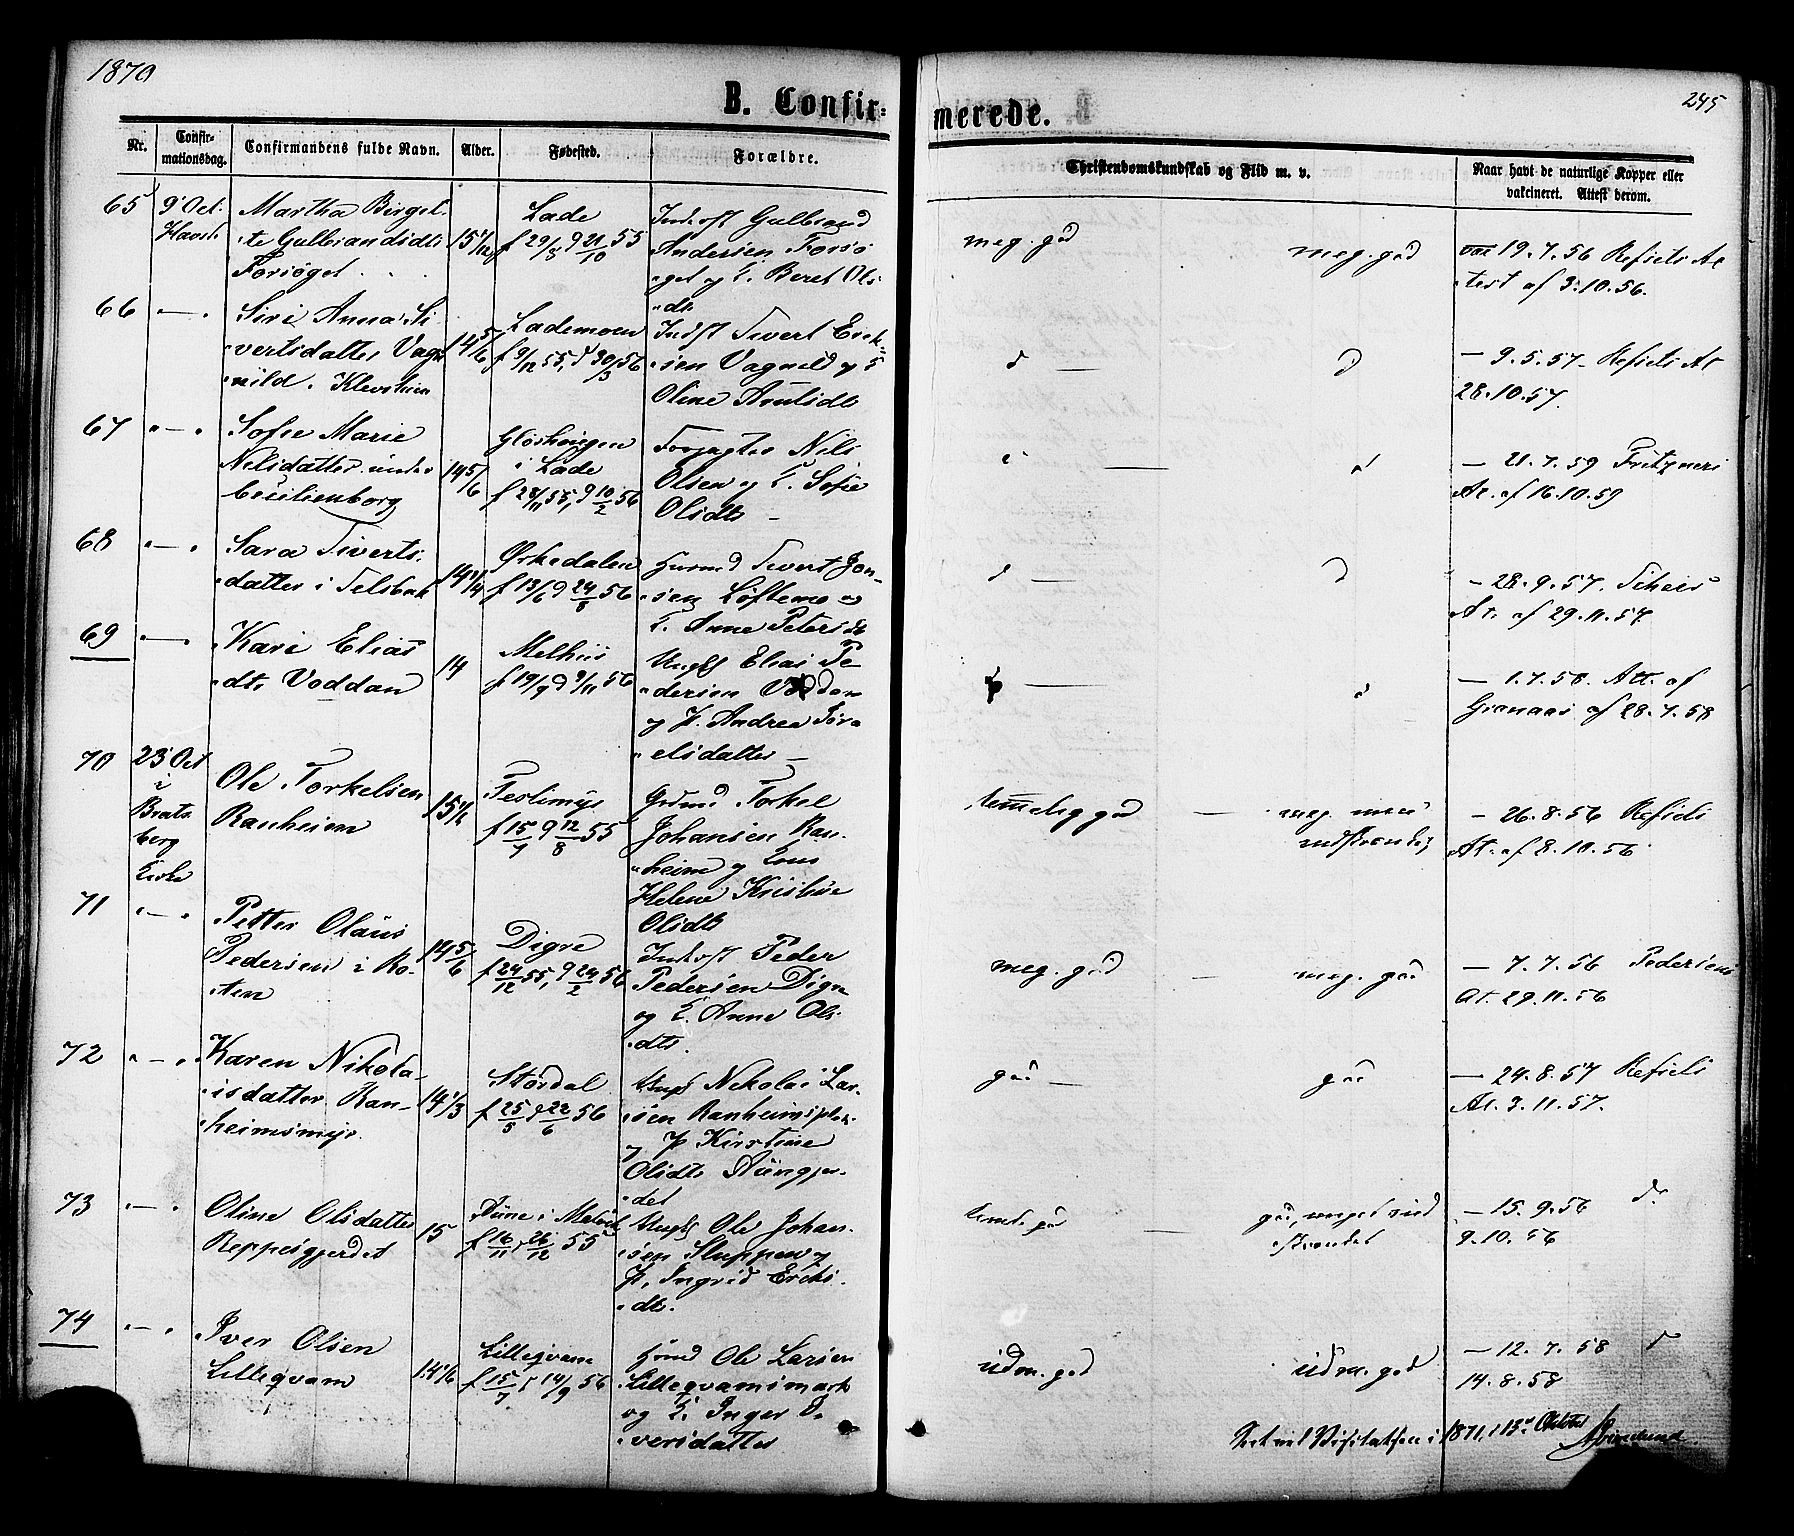 1870
245
B. Confir-
merede.
Nr.
Confir-
mationsdag.
Confirmandens fulde Navn.
Alder.
Fødested.
Forældre.
Christendomskundskab og Flid m. v.
Naar havt de naturlige Kopper eller
vakcineret. Attest derom.
65
9' Oct.
Havst.
Martha Birget-
te Gulbrandsdtr
Forsøget
15
Lade
f 29/8 d 21/10 55
Indrst Gulbrand
Andersen Forsø
get og E. Beret Ols
dtr
meg. god
meg. god
vac 19.7.56 Refsets At
test af 3.10.56.
66
" — "
Siri Anna Si
vertsdatter Vagn
nild. Klevstuen
14 5/6
Lademoen
f 9/12 55, d 30/3 56
Indst Sivert Erik
sen Vagnild og E
Oline Arntsdtr
d —
d
— 9.5.57 - Refsets At
28.10.57.
67
" — "
Sofie Marie
Nilsdatter under
Cecilienborg
14 5/6
Gløshaugen
i Lade
f 28/11 55, d 10/2 56
Forpagter Nils
Olsen og E. Sofie
Olsdtr —
d —
d
— 21.7.59
At. af 16.10.59
68
" — "
Sara Siverts-
datter i Selsbak
14 1/4
Ørkedalen
f 13/6 d 24/8 56
Husmd Sivert Jon-
sen Løftemo og
E. Anne Petersdtr
d —
d
— 28.9.57.
At. af 29.11.57
69
" — "
Kari Elias
dtr Voddan
14
Melhus
f 19/9 d 9/11 56
Ungk Elias Pe
dersen Voddan
og P. Andrea Isra
elsdatter —
d —
d
— 1.7.58. Att. af
Grønaas af 28.7.58
70
23' Oct
i
Brats
berg
Kirke
Ole Torkelsen
Ranheim
15 1/4
Teslimyr
f 15/7 d 12/8 55
Grdmd Torkel
Johansen Ran-
heim og Kone
Helene Kristine
Olsdtr
temmelig god
—
meg. god
— 26.8.56 Refsets
At. af 8.10.56
71
" — "
Petter Olaus
Pedersen i Ro-
sten
14 5/6
Digre
f 24/12 55, d 24/2 56
Indrst Peder
Pedersen Digre
og E. Anne Ols
dtr.
meg. god
—
meg. god
— 7.7.56 Pedersens
At. 29.11.56
72
" — "
Karen Nikola-
isdatter Ran-
heimsmyr.
14 1/3
Stördal
f 25/5 d 22/6 56
Ungk Nikolai Lar-
sen Ranheimsplds.
og P Kirstine
Olsdtr Aüngjer-
det
god —
god
— 24.8.57 Refsets
At. 3.11.57.
73
" — "
Oline Olsdatter
Reppesgjerdet
15
f 16/11 d 26/12 55
Ungk Ole Johan-
sen Stuppen og
P. Ingrid Eriks-
dtr.
teml. god
—
god, meget ind
— 15.9.56 do
9.10.56
74
" — "
Iver Olsen
Lilleqvam
14 1/6
Lilleqvam
f 15/7 d 14/9 56
Hmd Ole Larsen
Lilleqvamsmark
og E. Inger I-
versdatter
udm. god
udm. god
— 12.7.58 d
14.8.58
Seet ved Visitatsen i 1871, 13' Oktober